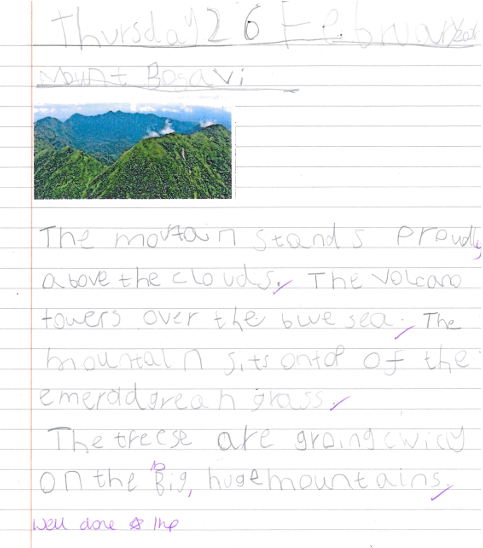 Thursday 26 February
Mount Bosavi
The mountain stands proudly
above the clouds. The volcano
towers over the bwe sea. The
mountain sits ontop of the
emerald grean grass.
The treese are groing cwicy
on the big, huge mountains.
Well done 1hp